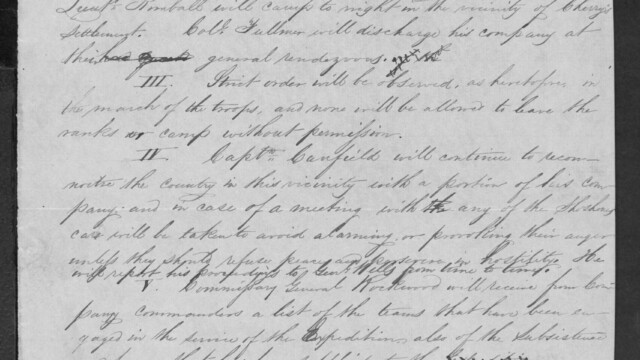 Lieut. Kimball will camp to night in the vicinity of Cherry's
Settlement. Colo. Fullmer will discharge his company at
their general rendezvous.
III. Strict order will be observed, as heretofore in
the march of the troops, and none will be allowed to leave the
ranks or camp without permission.
IV Capt. Canfield will continue to recon-
noitre the country in this vicinity with a portion of his com-
pany; and in case of a meeting with any of the
care will be taken to avoid alarming, or provoking their anger
unless they shall refuse peace and persevere in hostility. He
will report his proceedings to Genl. Wells from time to time.
V. Commissary General Rockwood will receive from Com-
pany commanders a list of the teams that have been en-
gaged in the service of the Expedition, also of the Subsistence